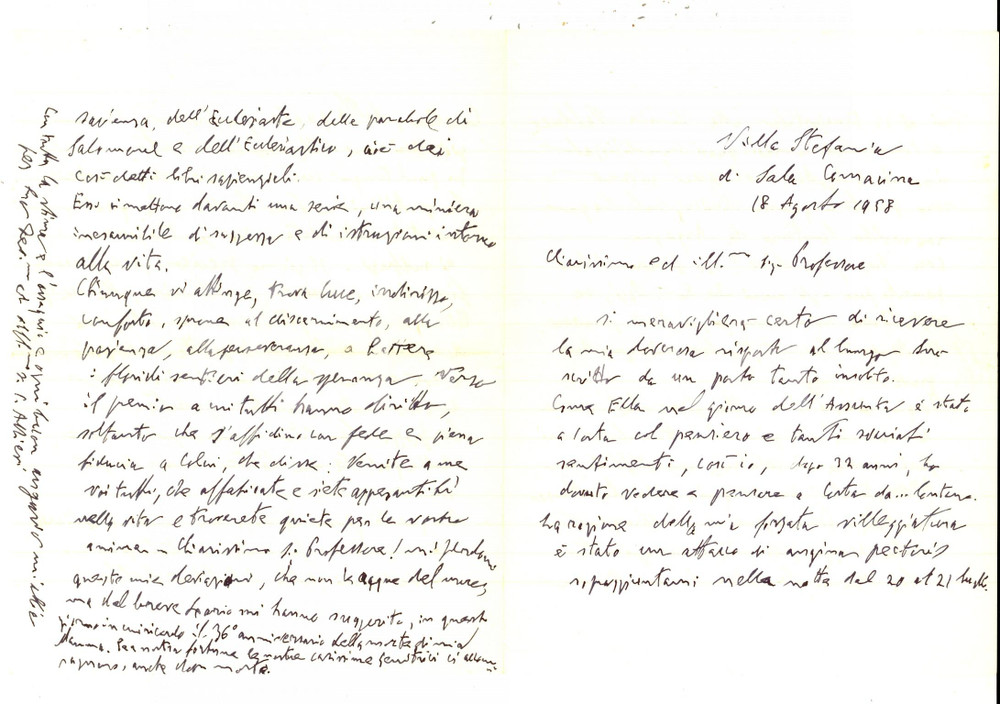 Villa Stefania
di Sala Comacina
18 Agosto 1958
Chiarissimo ed ill.mo Sig. Professore
Si meraviglierà certo di ricevere
la mia doverosa risposta al Suo
scritto da un posto tanto insolito.
Come Ella nel giorno dell'Assunta è stato
a Costa col pensiero e tanti svariati
sentimenti, così io, dopo 32 anni, ho
dovuto vedere e pensare a Costa da... lontano.
La ragione della mia forzata villeggiatura
è stato un attacco di angina pectoris
sopraggiuntami nella notte dal 20 al 21 luglio.
sapienza, dell'Ecclesiaste, delle parabole di
Salomone e dell'Ecclesiastico, cioè dei
così detti libri sapienziali.
Essi ci mettono davanti una serie, una miniera
inesauribile di saggezza e di istruzioni intorno
alla vita.
Chiunque vi attinge, trova luce, indirizzo,
conforto, sprone al discernimento, alla
pazienza, alla perseveranza, a battere
i floridi sentieri della speranza. Verso
il premio a cui tutti hanno diritto,
soltanto che s'affidino con fede e piena
fiducia a Colui, che disse: Venite a me
voi tutti, che affaticate e siete appesantiti
nella vita e troverete quiete per la vostra
anima. Chiarissimo Sig. Professore! mi perdoni
queste mie deviazioni, che non le acque del mare,
ma del breve spazio mi hanno suggerito, in questo
giorno in cui ricordo il 36° anniversario della morte di mia
Mamma. Per nostra fortuna le nostre carissime genitrici ci
anche dopo morte.
Con tutta la stima e l'ossequio e ogni buon augurio mi abbia
per Suo